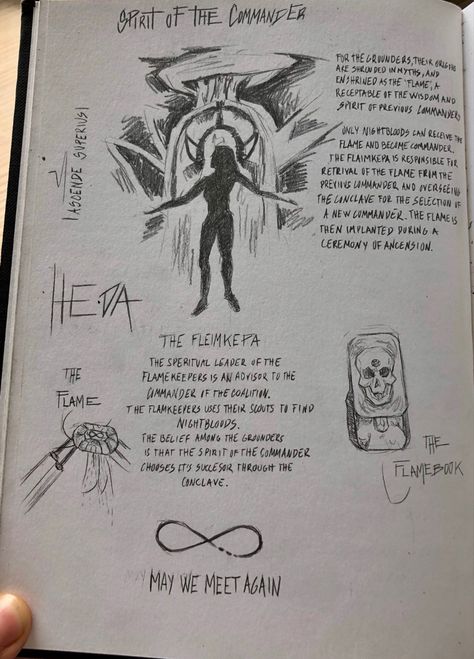 SPIRIT OF THE COMMANDER
FOR THE GROUNDERS, THEIR ORIGINS
ARE SHROUDED IN MYTHS, AND
ENSHRINED AS THE 'FLAME', A
RECEPTABLE OF THE WISDOM AND
SPIRIT OF PREVIOUS COMMANDERS
ONLY NIGHTBLOODS CAN RECEIVE THE
FLAME AND BECOME COMMANDER.
THE FLAIMKEPA IS RESPONSIBLE FOR
RETRIVAL OF THE FLAME FROM THE
PREVIUS COMMANDER, AND OVERSEEING
THE CONCLAVE FOR THE SELECTION OF
A NEW COMMANDER. THE FLAME IS
THEN IMPLANTED DURING A
CEREMONY OF ANCENSION.
ASCENDE SUPERIUS
HEDA
THE FLEIMKEPA
THE SPERITUAL LEADER OF THE
FLAMEKEEPERS IS AN ADVISOR TO THE
COMMANDER OF THE COALITION.
THE FLAMKEEPERS USES THEIR SCOUTS TO FIND
NIGHTBLOODS.
THE BELIEF AMONG THE GROUNDERS
IS THAT THE SPIRIT OF THE COMMANDER
CHOOSES IT'S SUCCESOR THROUGH THE
CONCLAVE.
THE
FLAME
THE
FLAMEBOOK
MAY WE MEET AGAIN